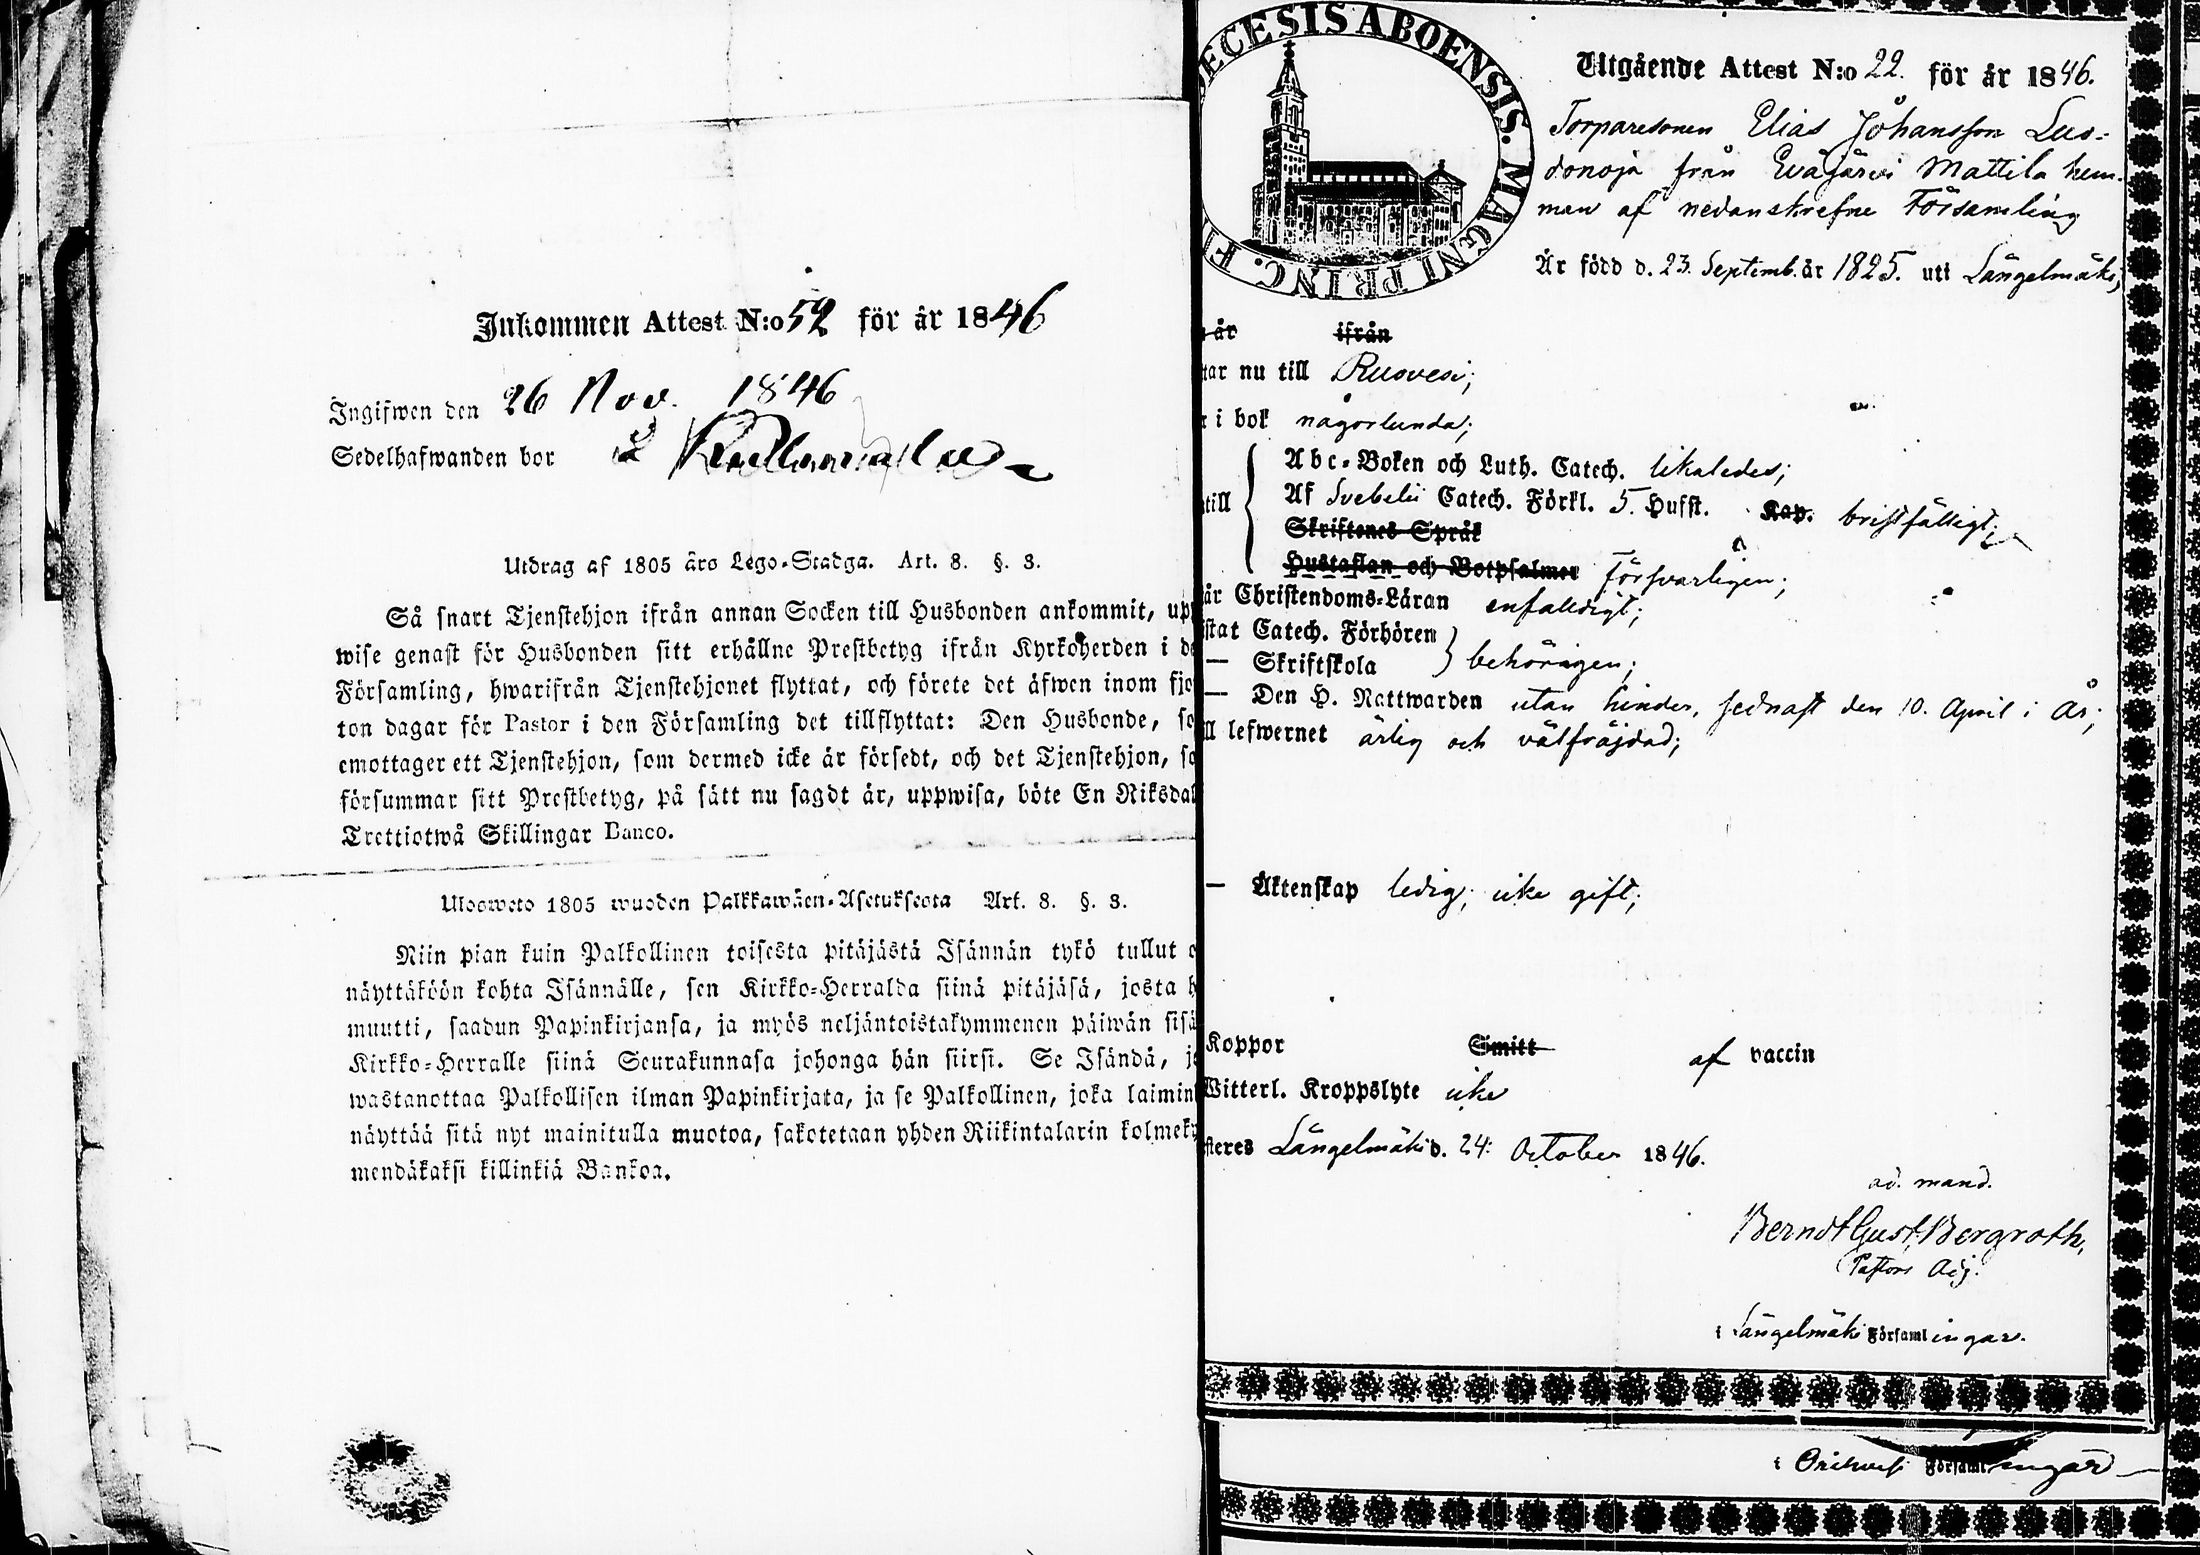 Inkommen Attest N:o 52 för år 1846
Ingifwen den 26 Nov. 1846
Sedelhafwanden bor å
Utdrag af 1805 års Lego-Stadga. Art. 8. §. 3.
Så snart Tjenstehjon ifrån annan Socken till Husbonden ankommit, upp
wise genast för Husbonden sitt erhållne Prestbetyg ifrån Kyrkoherden i de
Församling, hwarifrån Tjenstehjonet flyttat, och förete det äfwen inom fjo
ton dagar för Pastor i den Församling det tillflyttat: Den Husbonde, so
emottager ett Tjenstehjon, som dermed icke är försedt, och det Tjenstehjon, so
försummar sitt Prestbetyg, på sätt nu sagdt är, uppwisa, böte En Riksdal
Trettiotwå Skillingar Banco.
Ulosweto 1805 wuoden Palkkawäen-Asetuksesta Art. 8. §. 3.
Niin pian kuin Palkollinen toisesta pitäjästä Isännän tykö tullut o
näyttäköön kohta Isännälle, sen Kirkko-Herralda siinä pitäjäsä, josta h
muutti, saadun Papinkirjansa, ja myös neljäntoistakymmenen päiwän sisä
Kirkko-Herralle siinä Seurakunnasa johonga hän siirsi. Se Isändä, jo
wastanottaa Palkollisen ilman Papinkirjata, ja se Palkollinen, joka laimin
näyttää sitä nyt mainitulla muotoa, sakotetaan yhden Riikintalarin kolmeky
mendäkaksi killinkiä Bankoa.
DECESIS ABOENSIS. MAGNI PRINC. F
Utgående Attest N:o 22. för år 1846.
Torparesonen Elias Johansson Lus-
donoja från Eväjärvi Mattila hem-
man af nedanskrefne Församling
Är född d. 23. Septemb. år 1825. uti Längelmäki;
år ifrån
tar nu till Ruovesi;
r i bok någorlunda;
Abc-Boken och Luth. Catech. likaledes;
till Af Svebelii Catech. Förkl. 5. Hufst. Kap. bristfälligt;
Skriftenes Språk
Hustaflan och Botpsalmer Försvarligen;
är Christendoms-Läran enfalldigt;
stat Catech. Förhören
— Skriftskola behörigen;
— Den H. Nattwarden utan hinder, sednast den 10. April i År;
ll lefwernet ärlig och välfräjdad;
— Äktenskap ledig; icke gift;
Koppor Smitt af vaccin
Witterl. Kroppslyte icke
steres Längelmäki d. 24: October 1846.
ad. mand.
Berndt Gust. Bergroth,
Pastors Adj.
i Längelmäki Församlingar.
i Orihvesi Församlingar